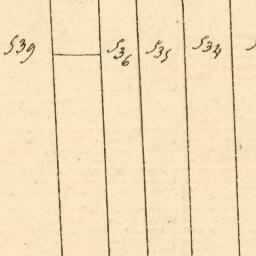 539 536 535 534